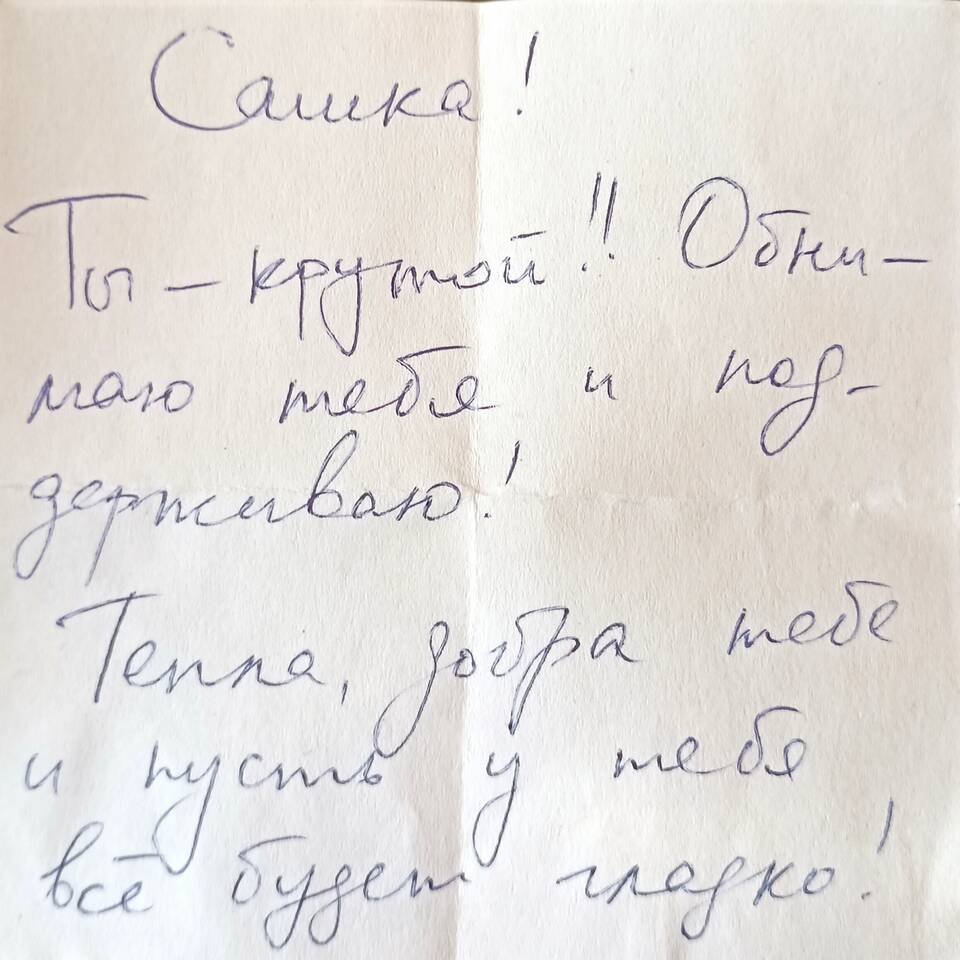 Сашка!
Ты – крутой!! Обни-
маю тебя и под-
держиваю!
Тепла, добра тебе
и пусть у тебя
всё будет гладко!